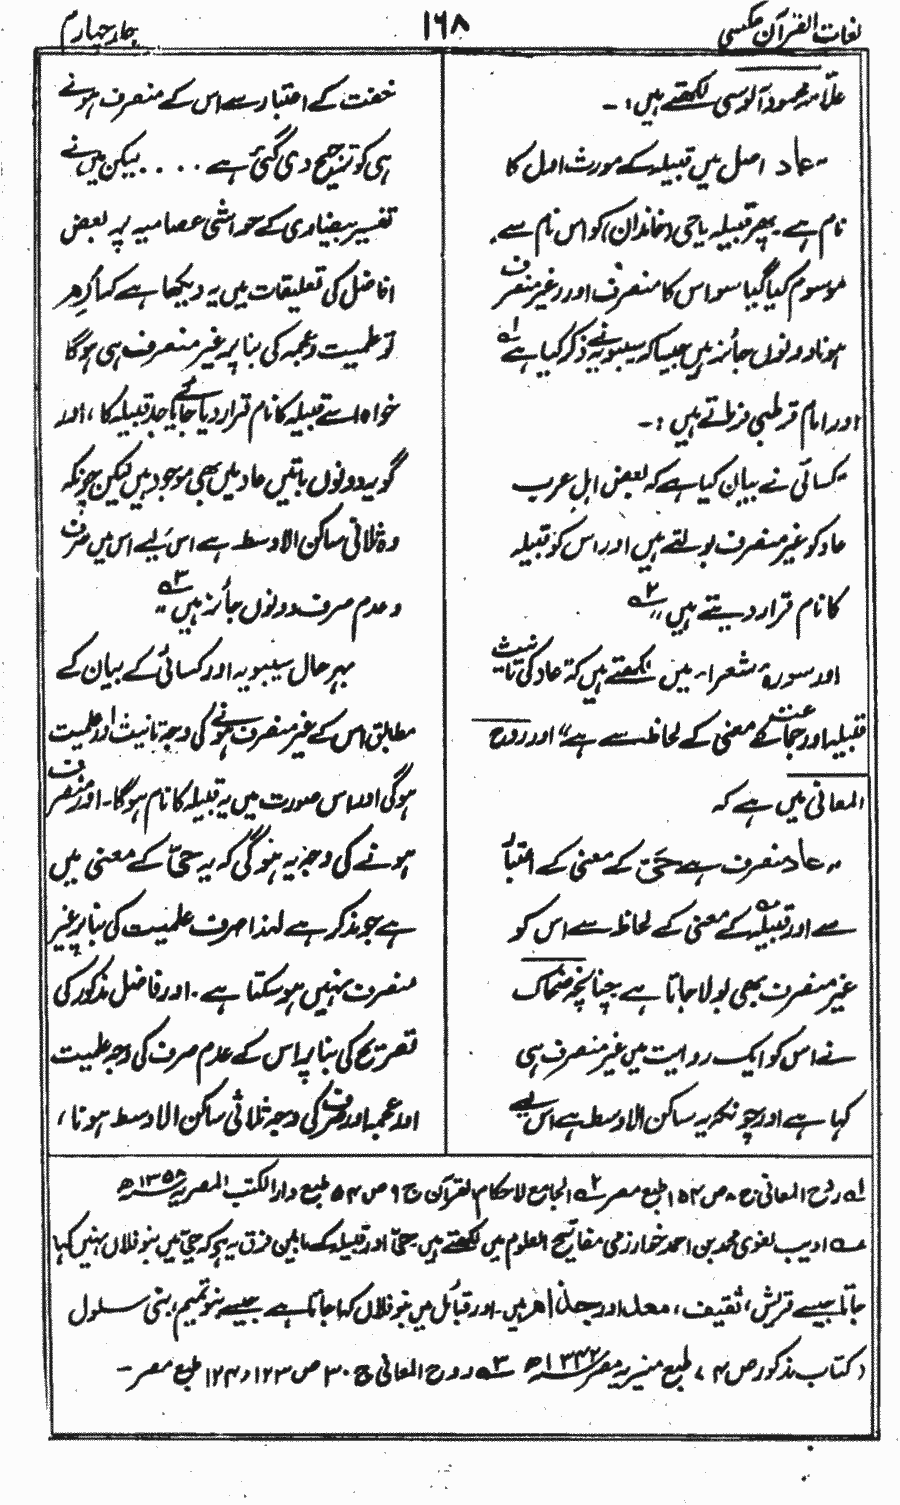 لغات القرآن عکسی
۱۶۸
جلد چہارم
علّامہ محمود آلوسی لکھتے ہیں :۔
"عاد اصل میں قبیلہ کے مورث اول کا
نام ہے پھر قبیلہ یا حی (خاندان) کو اس نام سے
موسوم کیا گیا سو اس کا منصرف اور غیر منصرف
ہونا دونوں جائز ہیں جیسا کہ سیبویہ نے ذکر کیا ہے لہ
اور امام قرطبی فرماتے ہیں :۔
"کسائی نے بیان کیا ہے کہ بعض اہل عرب
عاد کو غیر منصرف بولتے ہیں اور اس کو قبیلہ
کا نام قرار دیتے ہیں" ۲ہ
اور سورۂ شعراء میں لکھتے ہیں کہ عاد کی تانیث
قبیلہ اور جماعت کے معنی کے لحاظ سے ہے" اور روح
المعانی میں ہے کہ
"عاد منصرف ہے حَیّ کے معنی کے اعتبار
سے اور قبیلہ کے معنی کے لحاظ سے اس کو
غیر منصرف بھی بولا جاتا ہے چنانچہ ضحاک
نے اس کو ایک روایت میں غیر منصرف ہی
کہا ہے اور چونکہ یہ ساکن الاوسط ہے اس لیے
خفت کے اعتبار سے اس کے منصرف ہونے
ہی کو ترجیح دی گئی ہے . . . . لیکن میں نے
تفسیر بیضاوی کے حواشی عصامیہ پہ بعض
افاضل کی تعلیقات میں یہ دیکھا ہے کہ اگر ھر
تو علمیت و عجمہ کی بنا پر یہ غیر منصرف ہی ہوگا
خواہ اسے قبیلہ کا نام قرار دیا جائے یا جد قبیلہ کا، اور
گو یہ دونوں باتیں عاد میں بھی موجود ہیں لیکن چونکہ
وہ ثلاثی ساکن الاوسط ہے اس لیے اس میں صرف
و عدم صرف دونوں جائز ہیں" ۳ہ
بہر حال سیبویہ اور کسائی کے بیان کے
مطابق اس کے غیر منصرف ہونے کی وجہ تانیث اور علمیت
ہوگی اور اس صورت میں یہ قبیلہ کا نام ہوگا۔ اور منصرف
ہونے کی وجہ یہ ہوگی کہ یہ حیّ کے معنی میں
ہے جو مذکر ہے لہذا صرف علمیت کی بنا پر غیر
منصرف نہیں ہو سکتا ہے۔ اور فاضل مذکور کی
تصریح کی بنا پر اس کے عدم صرف کی وجہ علمیت
اور عجمہ اور صرف کی وجہ ثلاثی ساکن الاوسط ہونا،
لہ روح المعانی ج ۸ ص ۱۵۴ طبع مصر ۲ہ الجامع لاحکام القرآن ج ۹ ص ۵۴ طبع دار الکتب المصریہ ۱۳۵۸ھ
عہ ادیب لغوی محمد بن احمد خوارزمی مفاتیح العلوم میں لکھتے ہیں حیّ اور قبیلہ کے مابین فرق یہ ہے کہ حیّ میں بنو فلاں نہیں کہا
جاتا جیسے قریش، ثقیف، معد اور جذام ہیں۔ اور قبائل میں بنو فلاں کہا جاتا ہے جیسے بنو تمیم، بنی سلول
(کتاب مذکور ص ۷۴ طبع منیریہ مصر ۱۳۴۲ھ ۳ہ روح المعانی ج ۳۰ ص ۱۲۳ و ۱۲۴ طبع مصر۔